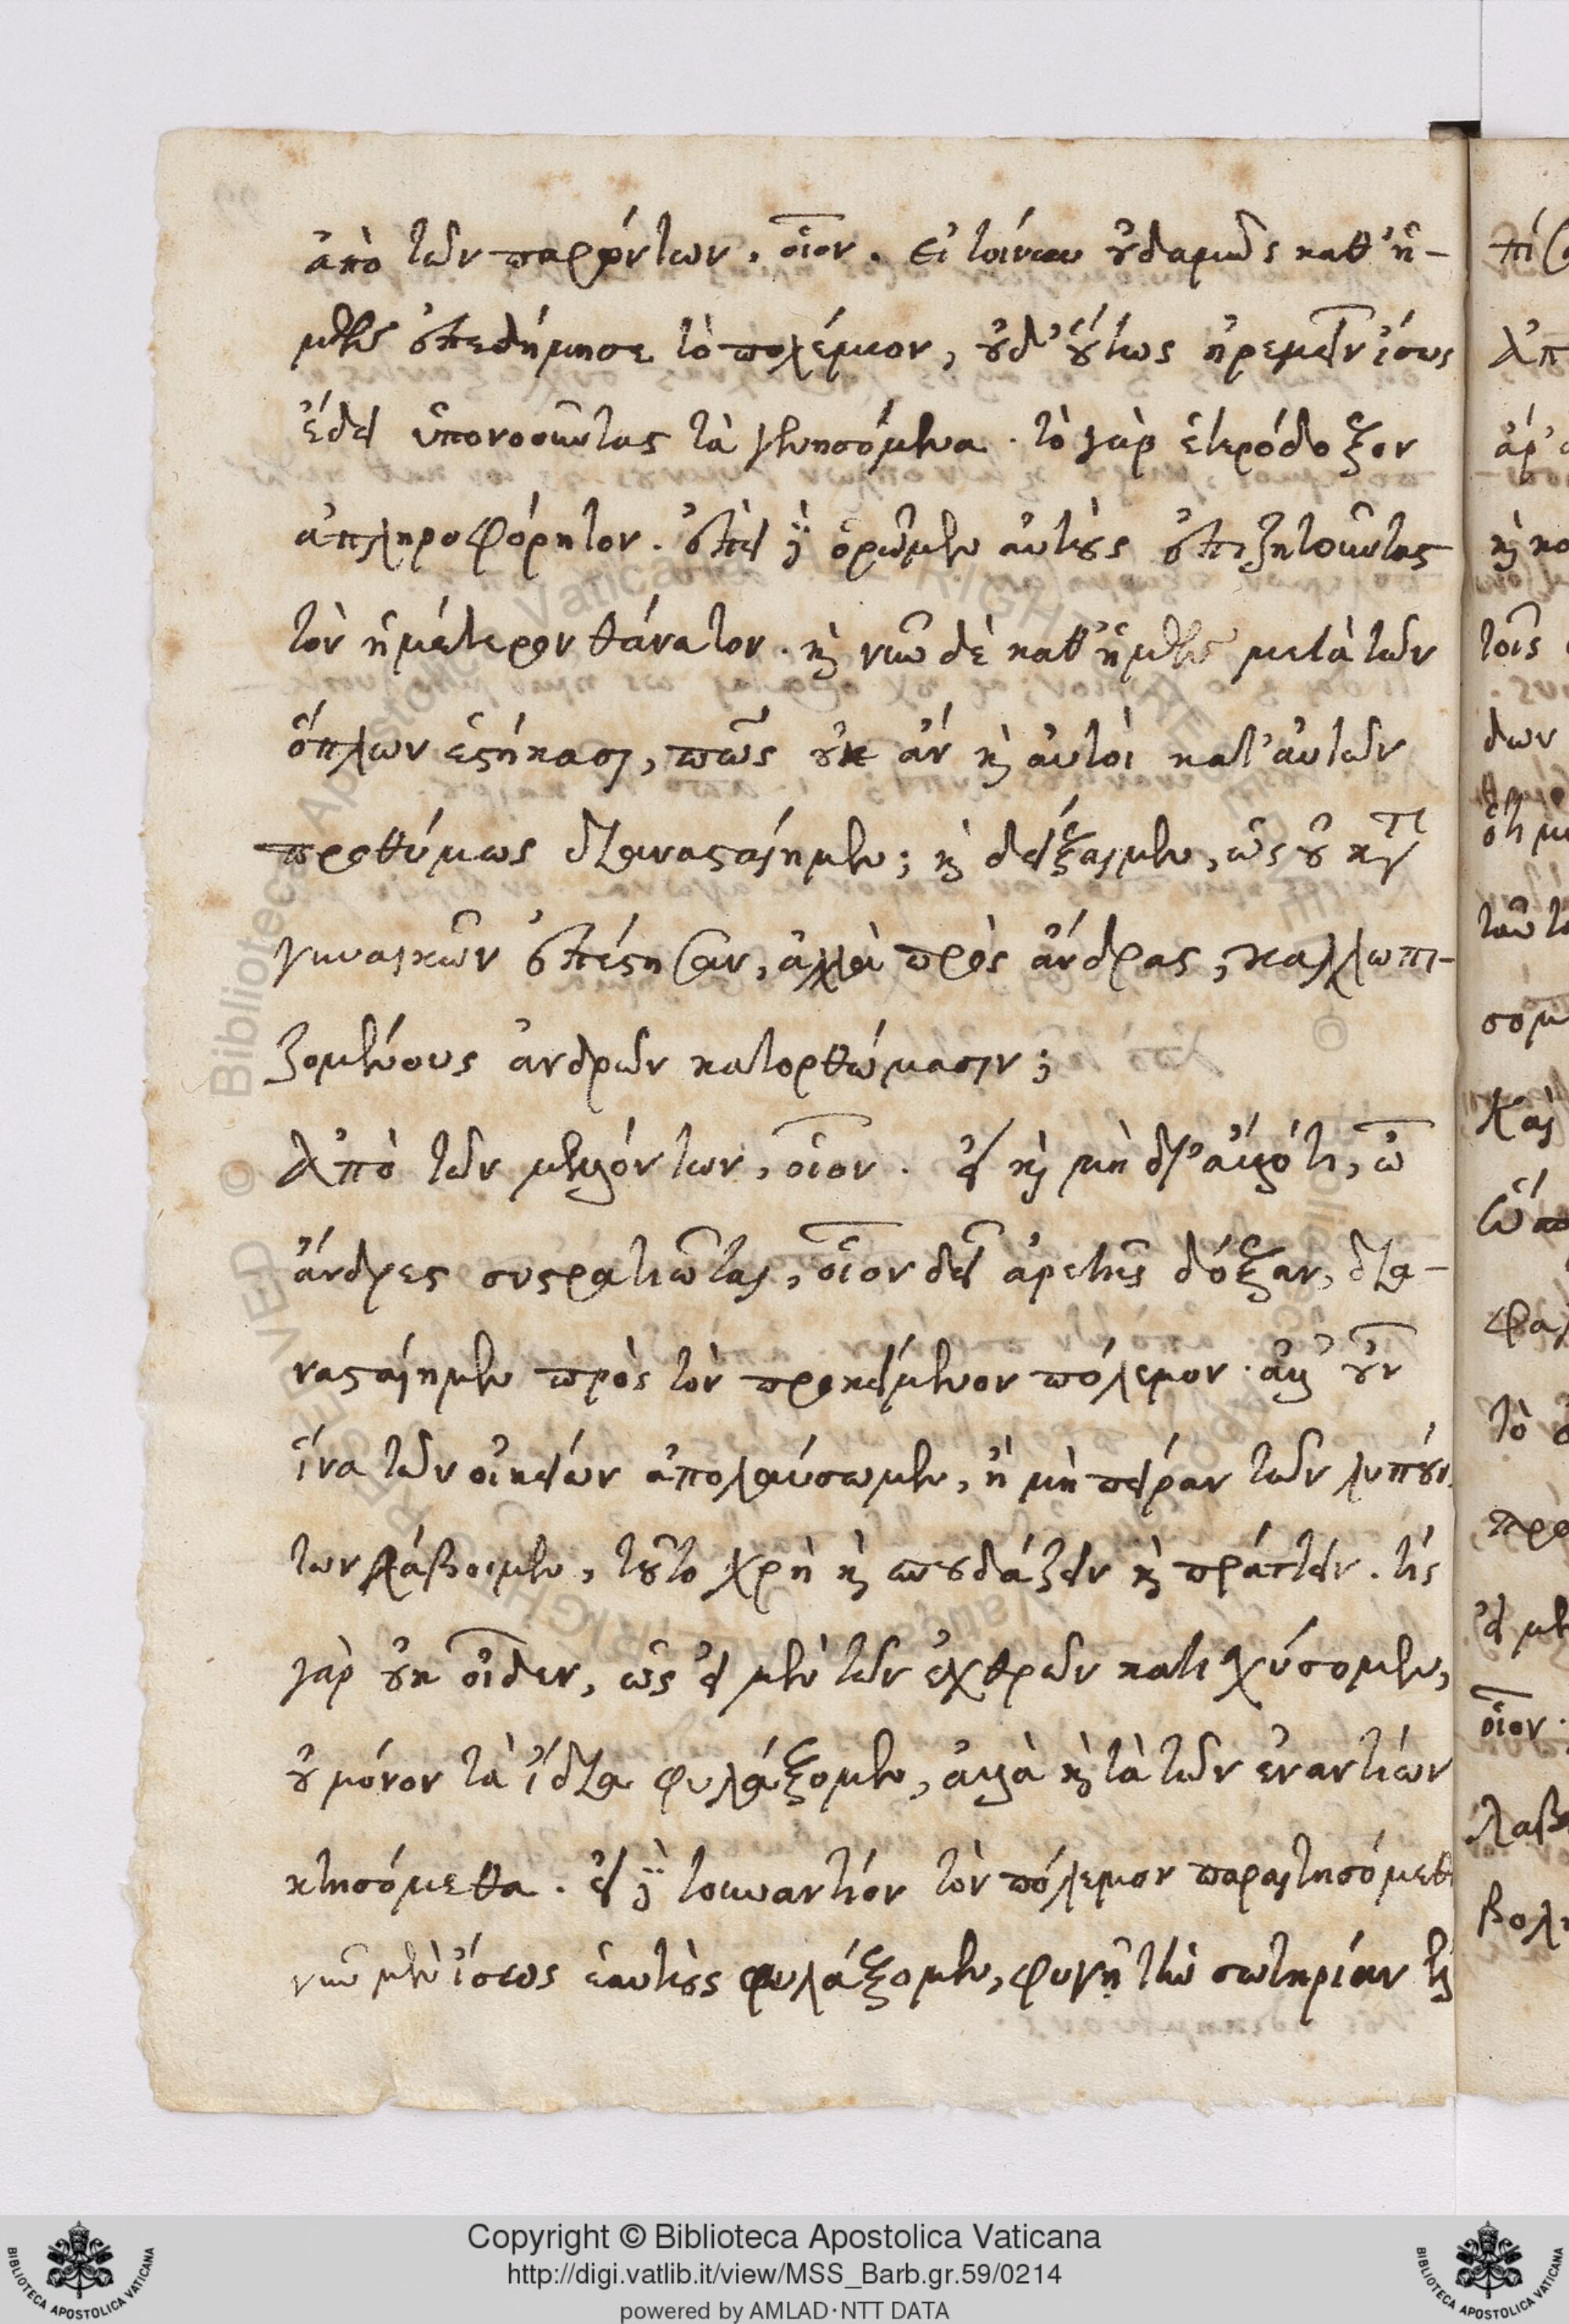 ἀπὸ τῶν παρόντων. οἷον. εἰ τοίνυν οὐδαμῶς καθ' ἡ-
μῶν ἐπεδήμησε τὸ πολέμιον, οὐδ' οὕτως ἠρεμεῖν ἴσως
ἔδει ὑπονοοῦντας τὰ γενησόμενα. τὸ γὰρ ἑτερόδοξον
ἀπληροφόρητον. ἐπεὶ δὲ ὁρῶμεν αὐτοὺς ἐπιζητοῦντας
τὸν ἡμέτερον θάνατον. καὶ νῦν δὲ καθ' ἡμῶν μετὰ τῶν
ὅπλων ἑστήκασι, πῶς οὐκ ἂν καὶ αὐτοὶ κατ' αὐτῶν
προθύμως διανασταίημεν; καὶ δείξαιμεν, ὡς οὐ κατὰ
γυναικῶν ἐπέστησαν, ἀλλὰ πρὸς ἄνδρας, καλλωπι-
ζομένους ἀνδρῶν κατορθώμασιν;
Ἀπὸ τῶν μελλόντων, οἷον. εἰ καὶ μὴ δι' ἄλλό τι, ὦ
ἄνδρες συστρατιῶται, οἷον δεῖ ἀρετῆς δόξαν, δια-
νασταίημεν πρὸς τὸν προκείμενον πόλεμον. ἀλλ' οὖν
ἵνα τῶν οἰκείων ἀπολαύσωμεν, ἢ μὴ πεῖραν τῶν λυπούν
των λάβοιμεν, τοῦτο χρὴ καὶ σπουδάζειν καὶ πράττειν. τίς
γὰρ οὐκ οἶδεν, ὡς εἰ μὲν τῶν ἐχθρῶν κατισχύσομεν,
οὐ μόνον τὰ ἴδια φυλάξομεν, ἀλλὰ καὶ τὰ τῶν ἐναντίων
κτησόμεθα. εἰ δὲ τοὐναντίον τὸν πόλεμον παραιτησόμεθα
νῦν μὲν ἴσως ἑαυτοὺς φυλάξομεν, φυγῇ τὴν σωτηρίαν
Copyright © Biblioteca Apostolica Vaticana
http://digi.vatlib.it/view/MSS_Barb.gr.59/0214
powered by AMLAD·NTT DATA